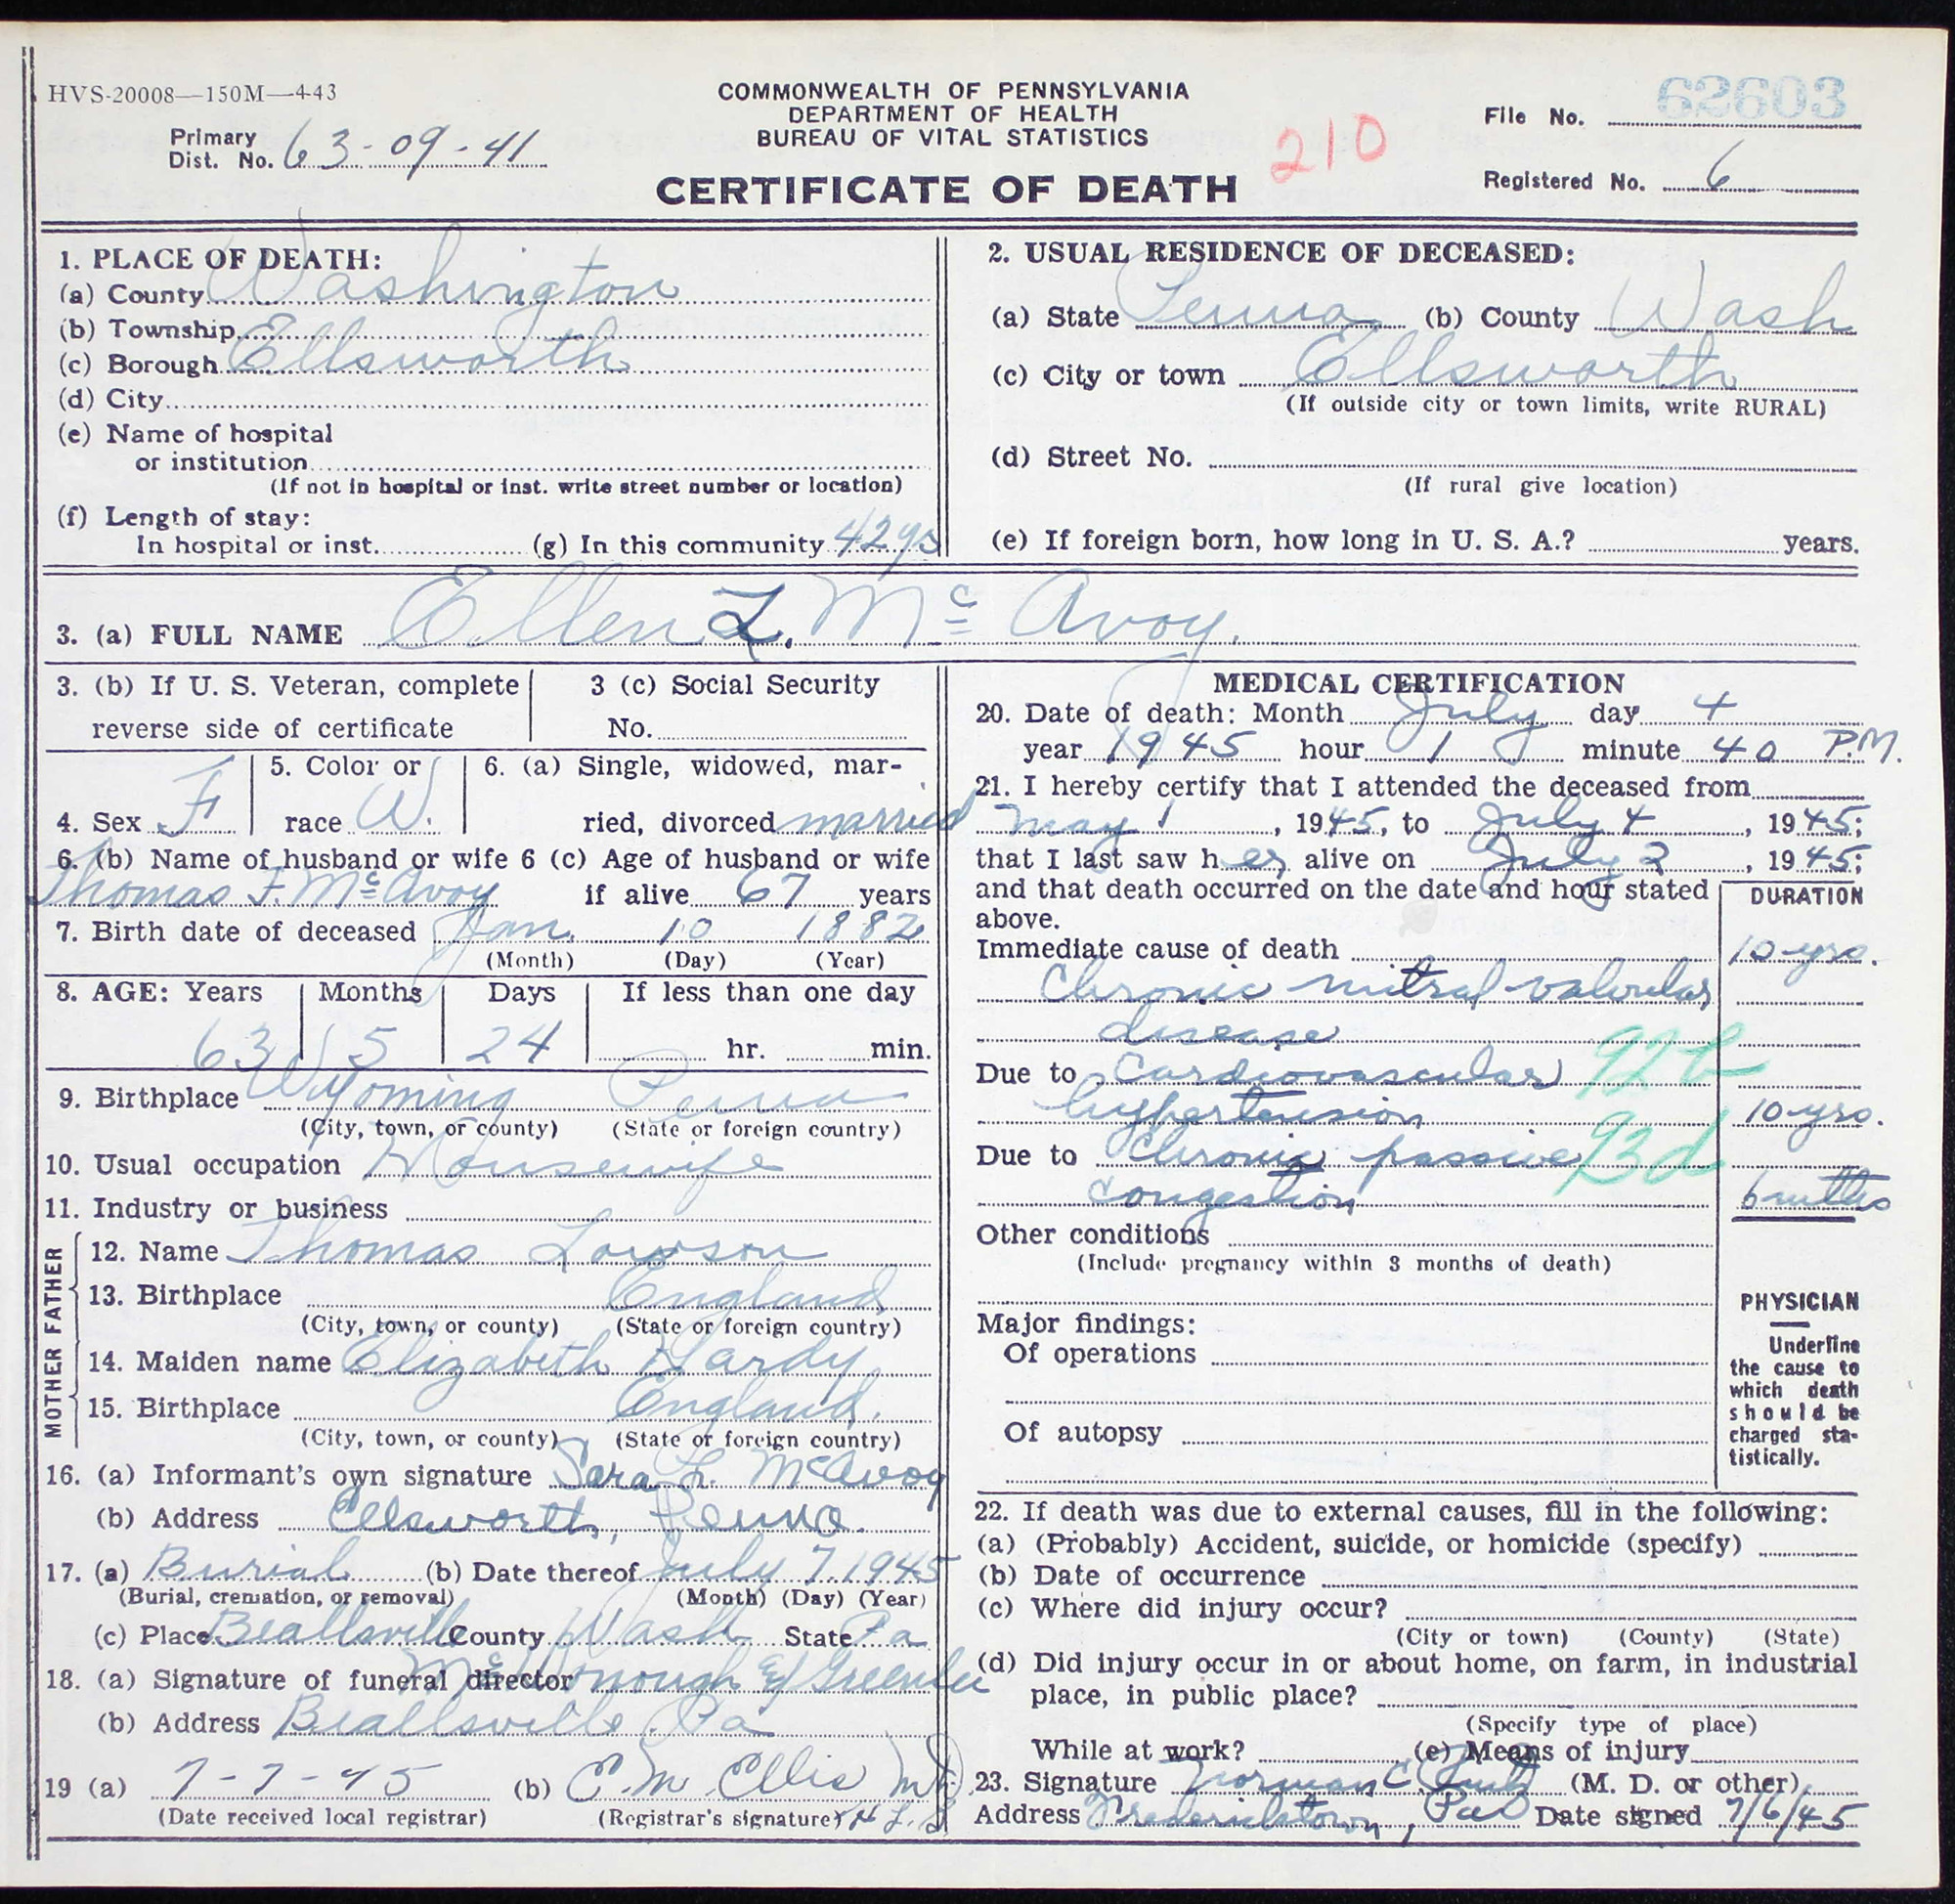 HVS-20008—150M—4-43
COMMONWEALTH OF PENNSYLVANIA
DEPARTMENT OF HEALTH
BUREAU OF VITAL STATISTICS
CERTIFICATE OF DEATH
Primary
Dist. No. 63-09-41
210
File No. 62603
Registered No. 6
1. PLACE OF DEATH:
(a) County Washington
(b) Township
(c) Borough Ellsworth
(d) City
(e) Name of hospital
or institution
(If not in hospital or inst. write street number or location)
(f) Length of stay:
In hospital or inst. (g) In this community 42 ys
2. USUAL RESIDENCE OF DECEASED:
(a) State Penna (b) County Wash
(c) City or town Ellsworth
(If outside city or town limits, write RURAL)
(d) Street No.
(If rural give location)
(e) If foreign born, how long in U. S. A.? years.
3. (a) FULL NAME Ellen L. Mc Avoy.
3. (b) If U. S. Veteran, complete
reverse side of certificate
3 (c) Social Security
No.
4. Sex F
5. Color or
race W.
6. (a) Single, widowed, mar-
ried, divorced married
6. (b) Name of husband or wife 6 (c) Age of husband or wife
Thomas F. Mc Avoy if alive 67 years
7. Birth date of deceased Jan. 10 1882
(Month) (Day) (Year)
8. AGE: Years Months Days If less than one day
63 5 24 hr. min.
9. Birthplace Wyoming Penna
(City, town, or county) (State or foreign country)
10. Usual occupation Housewife
11. Industry or business
FATHER
12. Name Thomas Lawson
13. Birthplace England
(City, town, or county) (State or foreign country)
MOTHER
14. Maiden name Elizabeth Hardy
15. Birthplace England.
(City, town, or county) (State or foreign country)
16. (a) Informant's own signature Sara L. McAvoy
(b) Address Ellsworth, Penna.
17. (a) Burial (b) Date thereof July 7, 1945
(Burial, cremation, or removal) (Month) (Day) (Year)
(c) Place Beallsville County Wash State Pa
18. (a) Signature of funeral director McDonough & Greenlee
(b) Address Beallsville, Pa
19 (a) 7-7-45 (b) C. M. Ellis MD.
(Date received local registrar) (Registrar's signature)
MEDICAL CERTIFICATION
20. Date of death: Month July day 4
year 1945 hour 1 minute 40 P.M.
21. I hereby certify that I attended the deceased from
May 1, 1945, to July 4, 1945;
that I last saw her alive on July 2, 1945;
and that death occurred on the date and hour stated
above.
DURATION
Immediate cause of death 10 yrs.
Chronic mitral valvular
disease
Due to Cardiovascular 92b
hypertension 10 yrs.
Due to Chronic passive 93d
congestion 6 mths
Other conditions
(Include pregnancy within 3 months of death)
Major findings:
Of operations
Of autopsy
PHYSICIAN
Underline
the cause to
which death
should be
charged sta-
tistically.
22. If death was due to external causes, fill in the following:
(a) (Probably) Accident, suicide, or homicide (specify)
(b) Date of occurrence
(c) Where did injury occur?
(City or town) (County) (State)
(d) Did injury occur in or about home, on farm, in industrial
place, in public place?
(Specify type of place)
While at work? (e) Means of injury
23. Signature Norman C. (M. D. or other)
Address Fredericktown, Pa Date signed 7/6/45